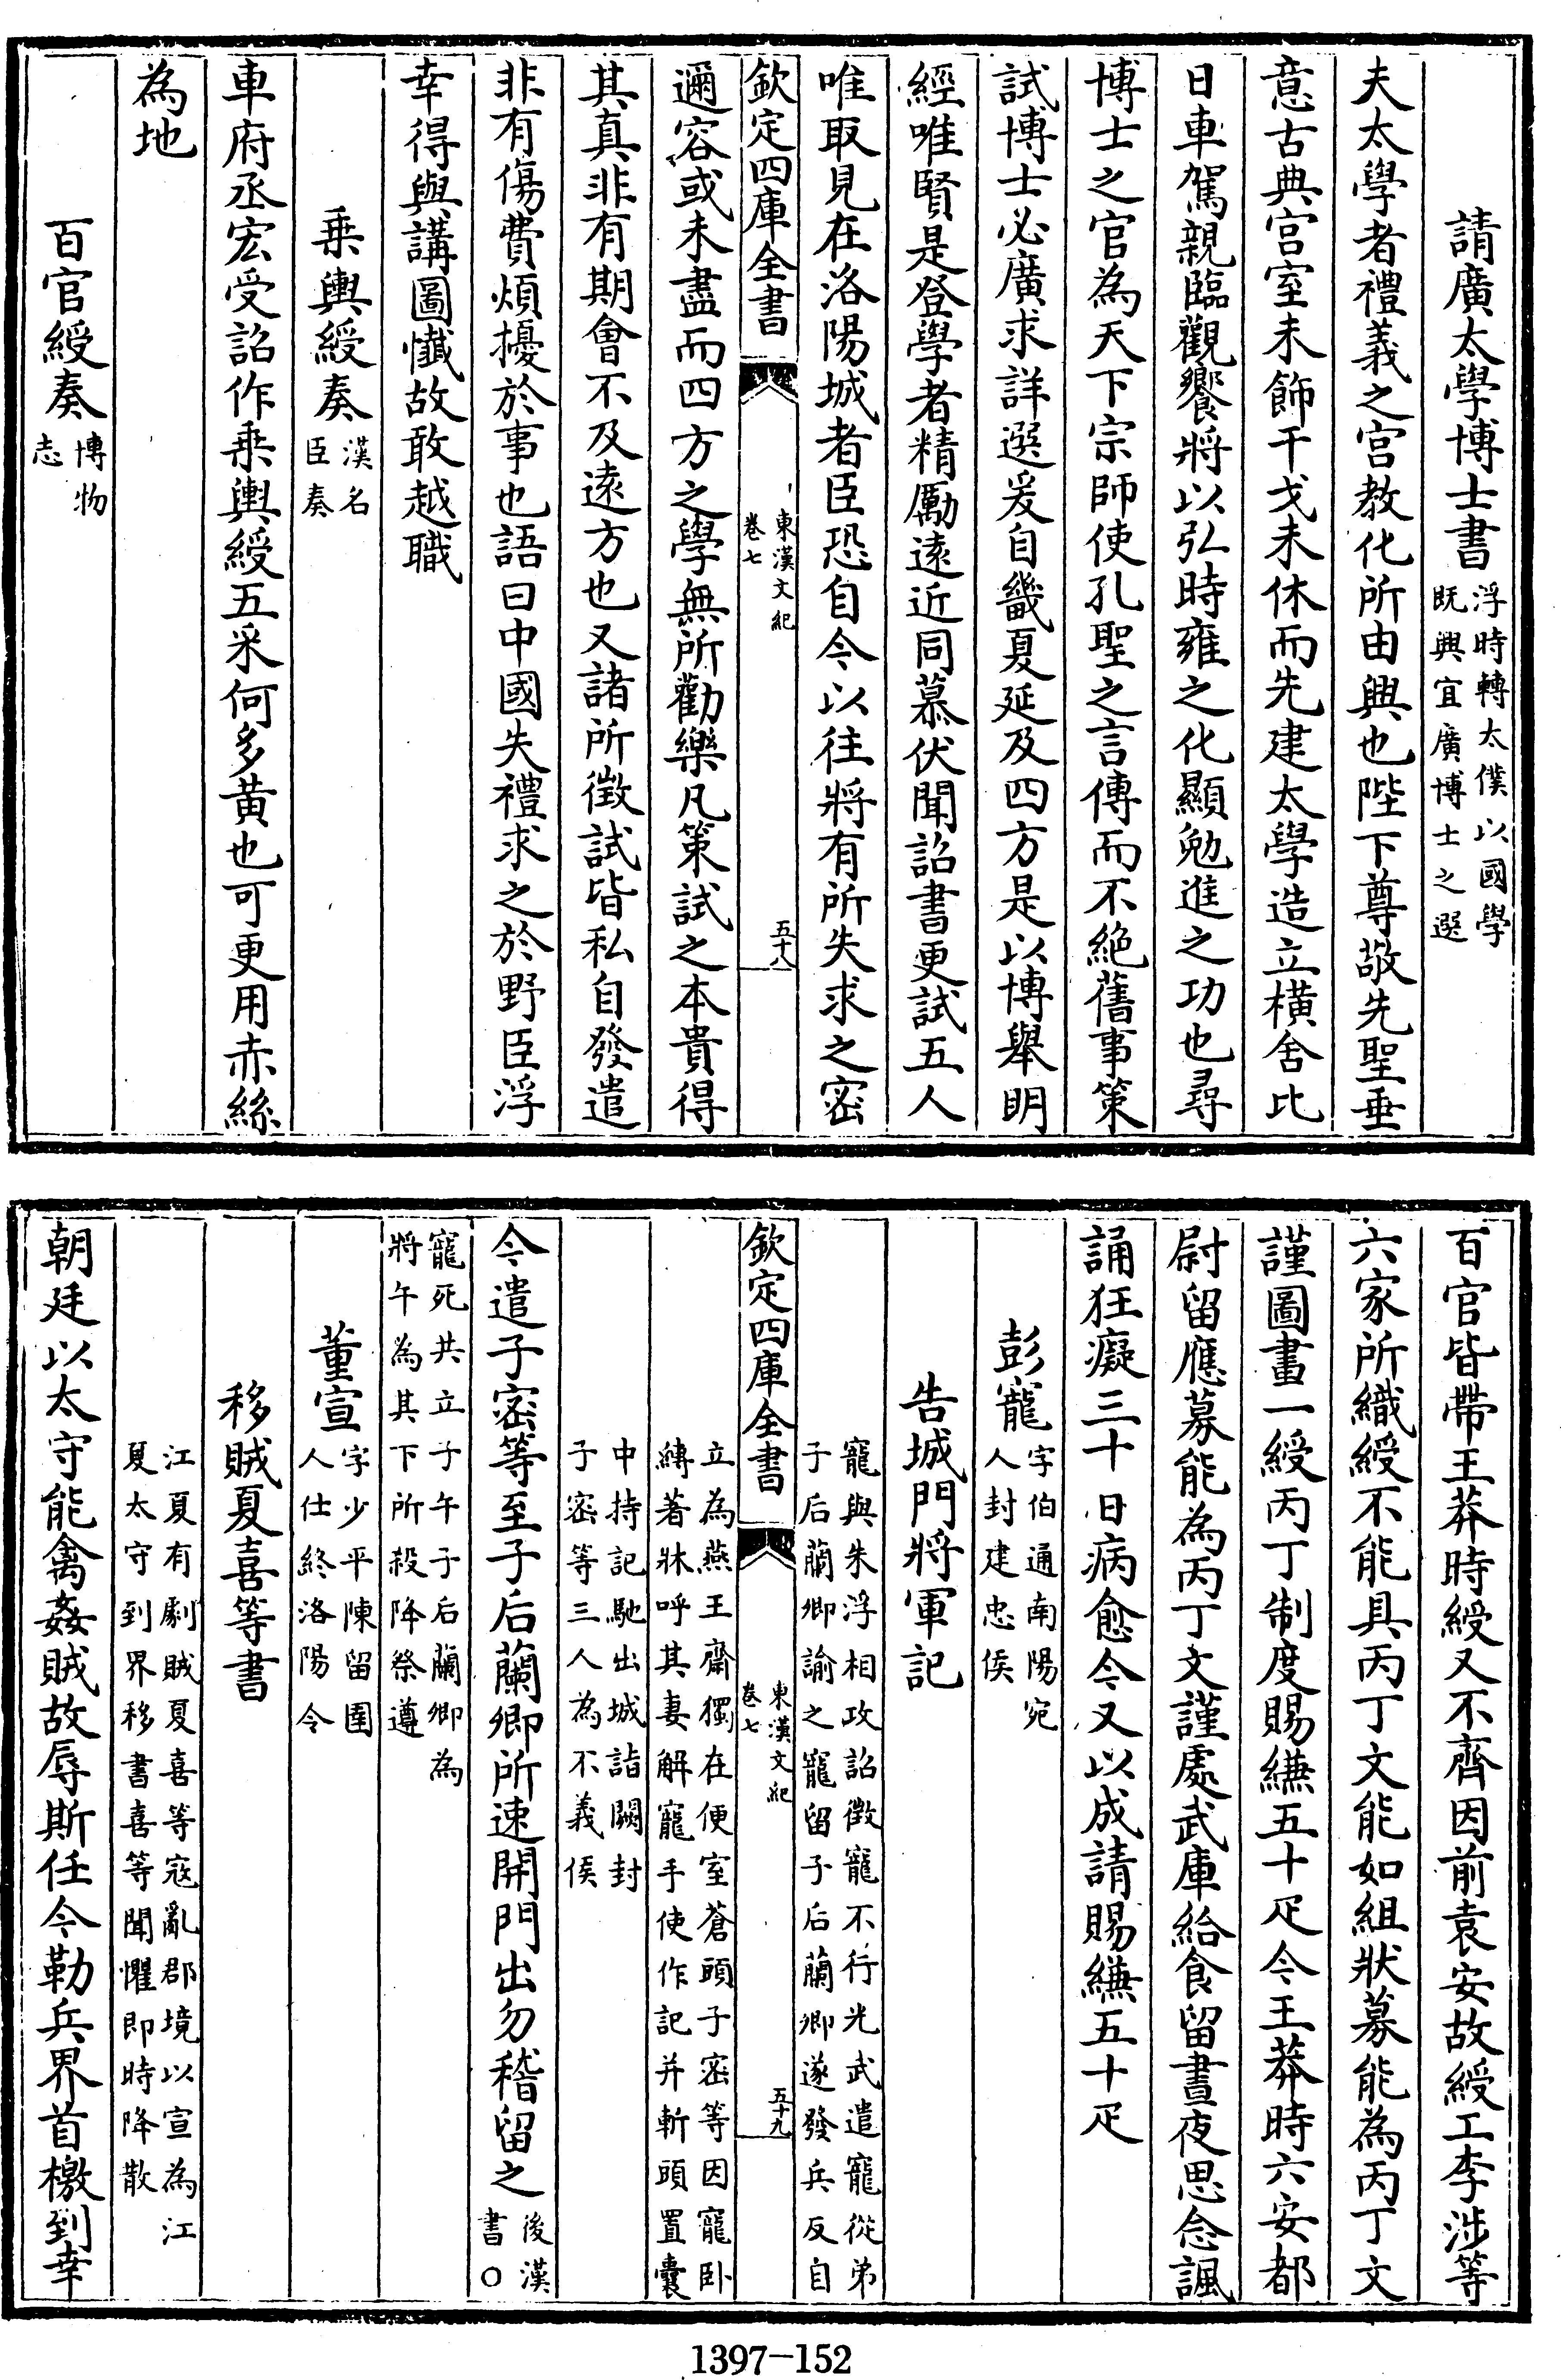 請廣太學博士書浮時轉太僕以國學既興宜廣博士之選
夫太學者禮義之宮教化所由興也陛下尊敬先聖垂
意古典宮室未飾干戈未休而先建太學造立橫舍比
日車駕親臨觀饗將以弘時雍之化顯勉進之功也尋
博士之官為天下宗師使孔聖之言傳而不絕舊事策
試博士必廣求詳選爰自畿夏延及四方是以博舉明
經唯賢是登學者精勵遠近同慕伏聞詔書更試五人
唯取見在洛陽城者臣恐自今以往將有所失求之密
欽定四庫全書 東漢文紀卷七 五十八
邇容或未盡而四方之學無所勸樂凡策試之本貴得
其真非有期會不及遠方也又諸所徵試皆私自發遣
非有傷費煩擾於事也語曰中國失禮求之於野臣浮
幸得與講圖懺故敢越職
乗輿綬奏漢名臣奏
車府丞宏受詔作乗輿綬五采何多黄也可更用赤絲
為地
百官綬奏博物志
百官皆帶王莽時綬又不齊因前袁安故綬工李涉等
六家所織綬不能具丙丁文能如組狀募能為丙丁文
謹圖畫一綬丙丁制度賜縑五十疋今王莽時六安都
尉留應募能為丙丁文謹處武庫給食留晝夜思念諷
誦狂癡三十日病愈今又以成請賜縑五十疋
彭寵字伯通南陽宛人封建忠侯
告城門將軍記
寵與朱浮相攻詔徵寵不行光武遣寵從弟子后蘭卿諭之寵留子后蘭卿遂發兵反自
欽定四庫全書 東漢文紀卷七 五十九
立為燕王齋獨在便室蒼頭子密等因寵卧縛著牀呼其妻解寵手使作記并斬頭置囊
中持記馳出城詣闕封子密等三人為不義侯
今遣子密等至子后蘭卿所速開門出勿稽留之後漢書○
寵死共立子午子后蘭卿為將午為其下所殺降祭遵
董宣字少平陳留圉人仕終洛陽令
移賊夏喜等書
江夏有劇賊夏喜等寇亂郡境以宣為江夏太守到界移書喜等聞懼即時降散
朝廷以太守能禽姦賊故辱斯任今勒兵界首檄到幸
1397-152